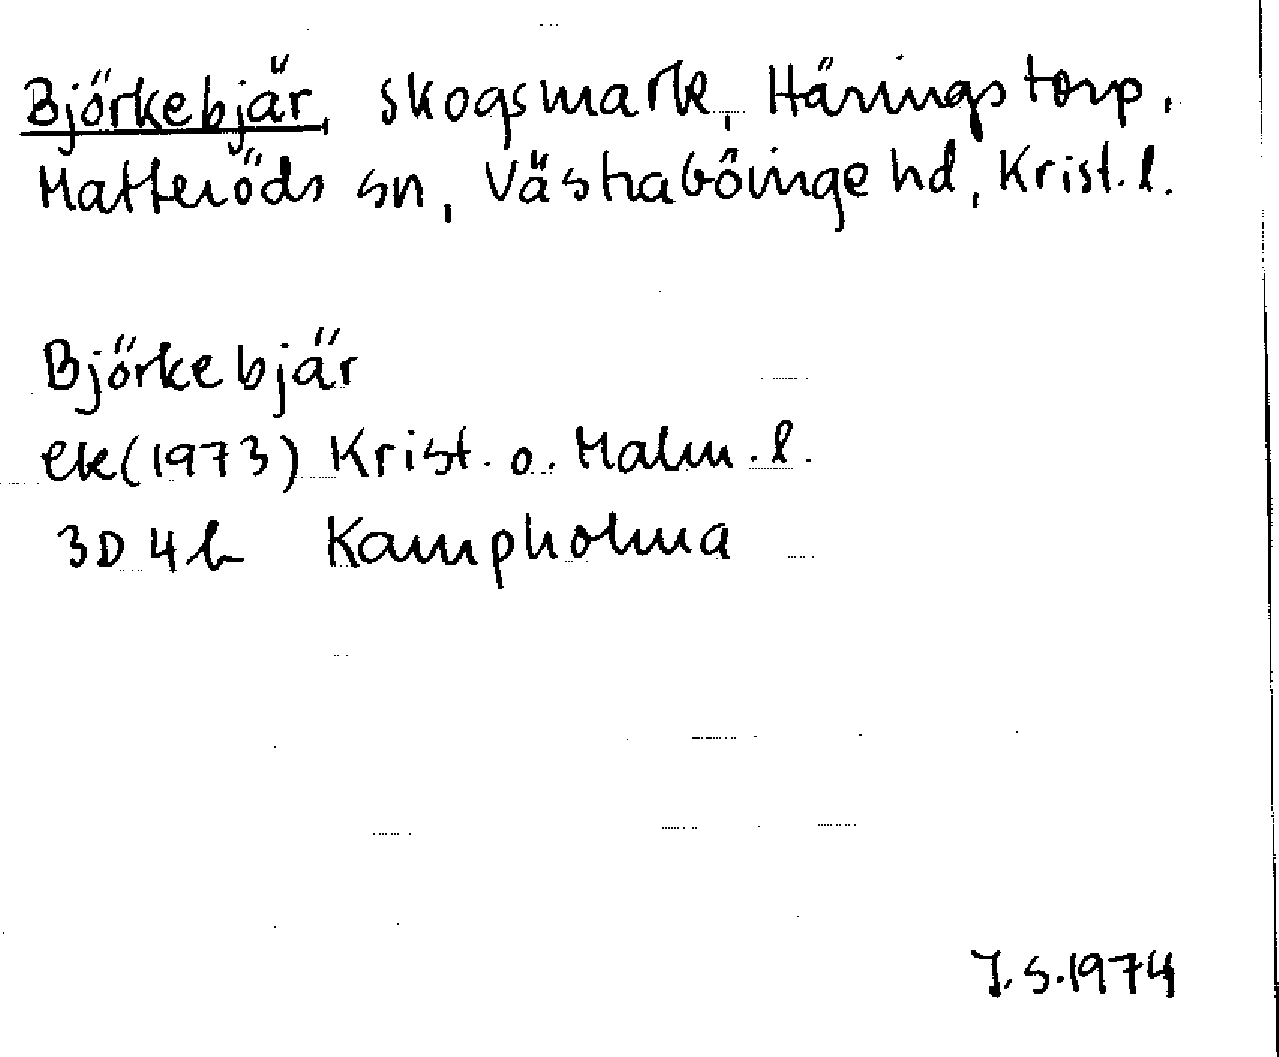 Björkebjär, skogsmark, Häringstorp,
Matteröds sn, Västra Göinge hd, Krist. l.
Björkebjär
ek (1973) Krist. o. Malm. l.
3D 4b Kampholma
J.S. 1974